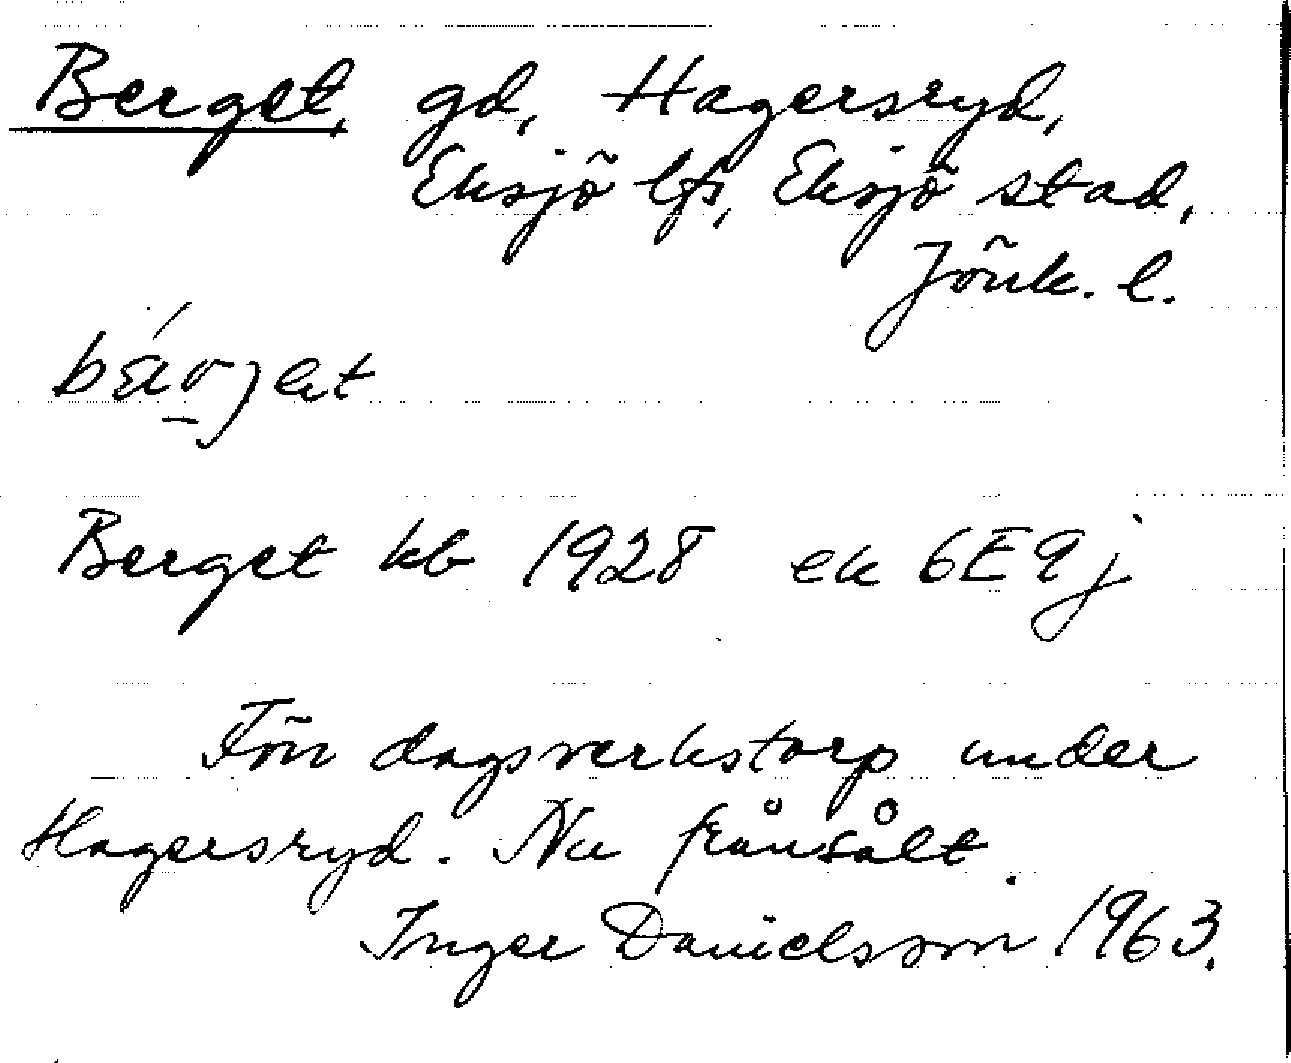 Berget, gd, Hagersryd,
Eksjö lfs, Eksjö stad,
Jönk. l.
bærjet
Berget kb 1928 ek 6E9j
Förr dagsverkstorp under
Hagersryd. Nu frånsålt.
Inger Danielsson 1963.